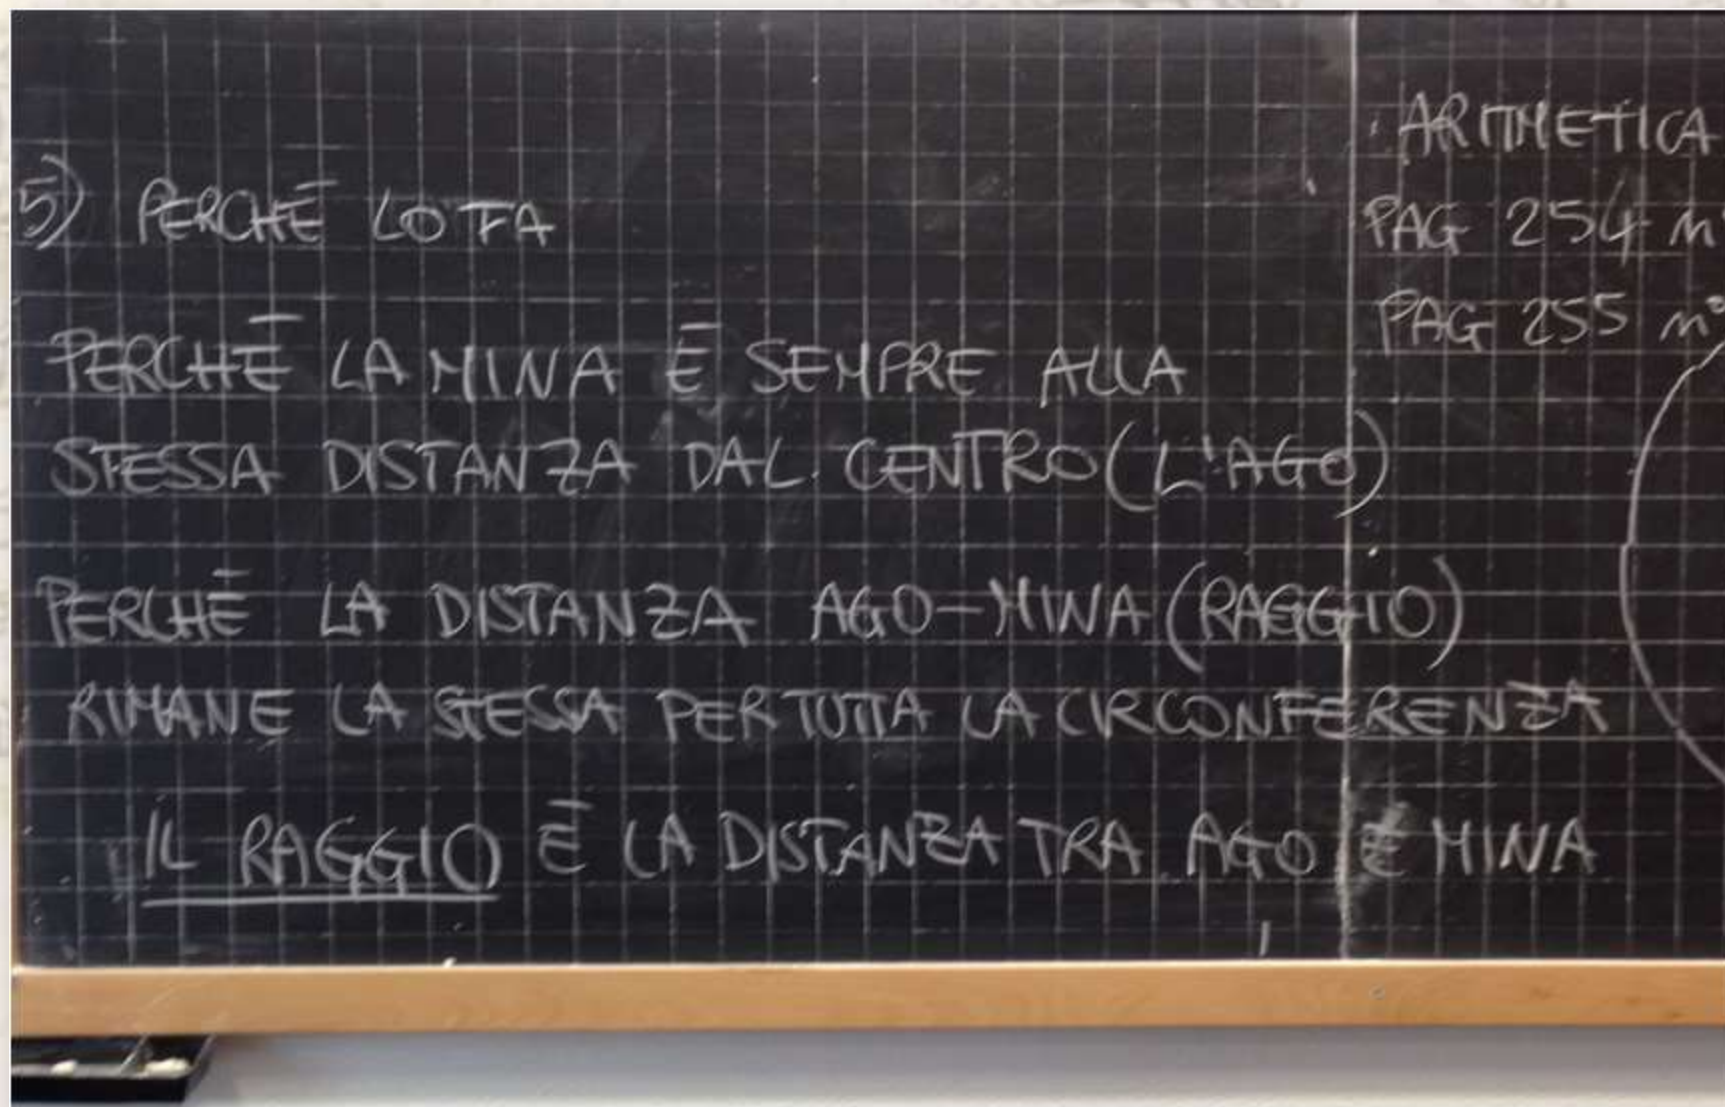 5) PERCHÉ LO FA
PERCHÉ LA MINA É SEMPRE ALLA
STESSA DISTANZA DAL CENTRO (L'AGO)
PERCHÉ LA DISTANZA AGO-MINA (RAGGIO)
RIMANE LA STESSA PER TUTTA LA CIRCONFERENZA
IL RAGGIO É LA DISTANZA TRA AGO E MINA
ARITMETICA
PAG 254 n°
PAG 255 n°